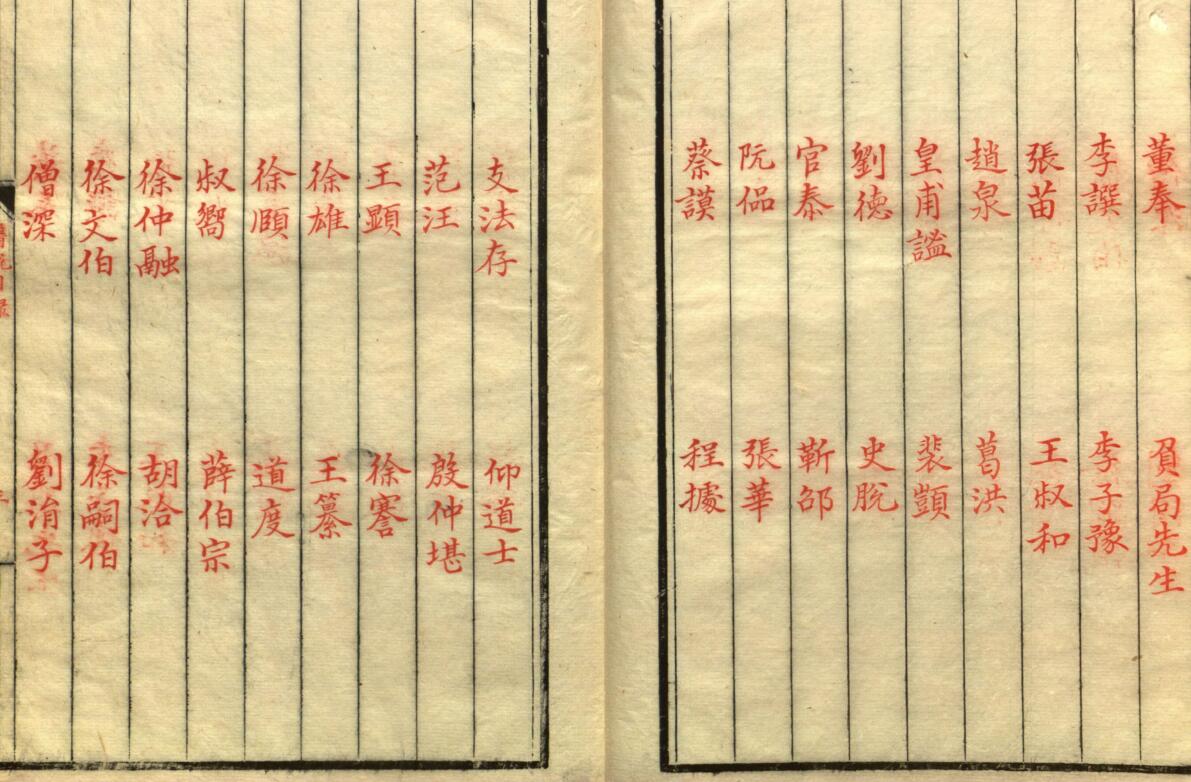 董奉 負局先生
李譔 李子豫
張苗 王叔和
趙泉 葛洪
皇甫謐 裴顗
劉德 史脫
官泰 靳邵
阮偘 張華
蔡謨 程據
支法存 仰道士
范汪 殷仲堪
王顯 徐謇
徐雄 王纂
徐頤 道度
叔嚮 薛伯宗
徐仲融 胡洽
徐文伯 徐嗣伯
僧深 劉涓子